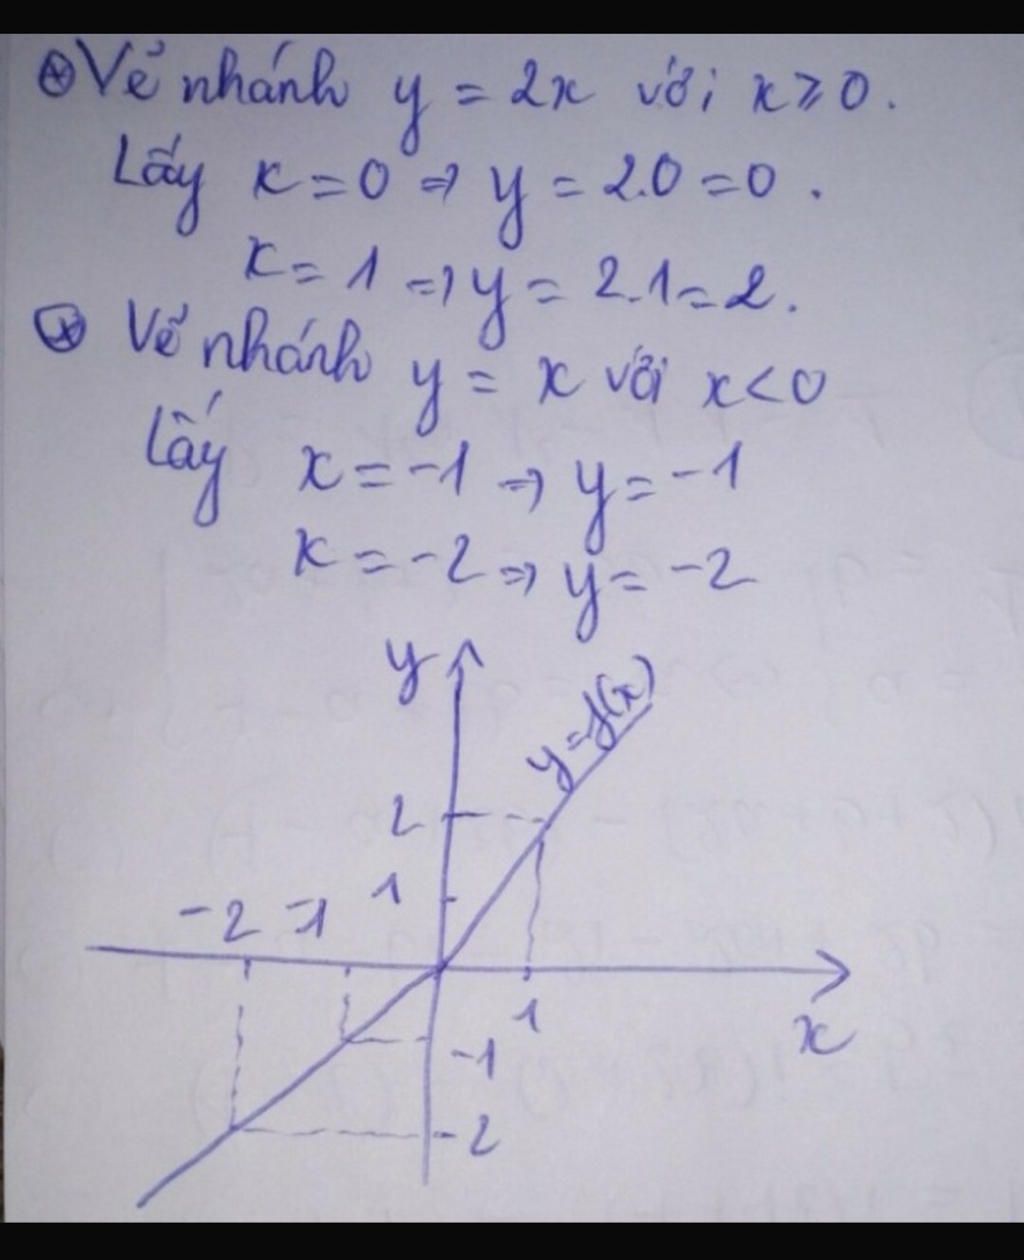 ⊛ Vẽ nhánh y = 2x với x ≥ 0.
Lấy x = 0 ⇒ y = 2.0 = 0.
x = 1 ⇒ y = 2.1 = 2.
⊛ Vẽ nhánh y = x với x < 0
Lấy x = -1 ⇒ y = -1
x = -2 ⇒ y = -2
y
y = f(x)
2
1
-2 -1
1
x
-1
-2